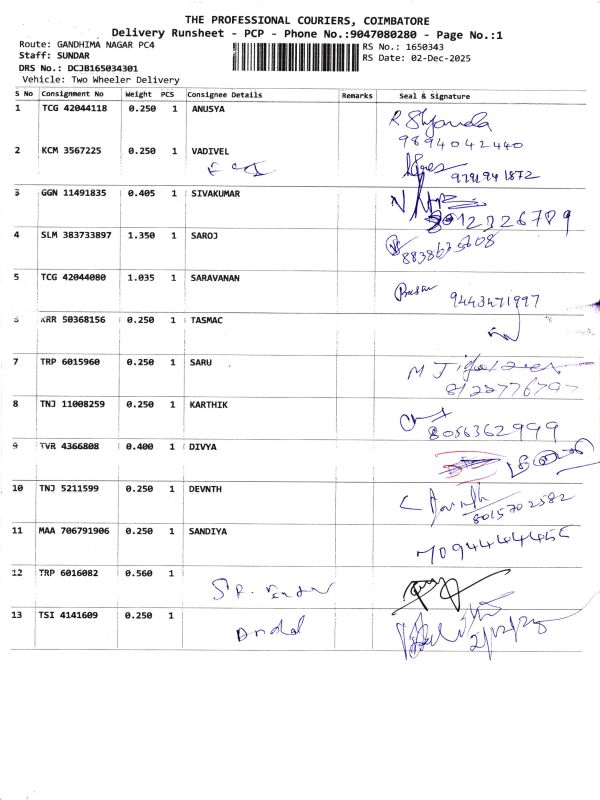 THE PROFESSIONAL COURIERS, COIMBATORE
Delivery Runsheet - PCP - Phone No.:9047080280 - Page No.:1
Route: GANDHIMA NAGAR PC4 RS No.: 1650343
Staff: SUNDAR RS Date: 02-Dec-2025
DRS No.: DCJB165034301
Vehicle: Two Wheeler Delivery
S No Consignment No Weight PCS Consignee Details Remarks Seal & Signature
1 TCG 42044118 0.250 1 ANUSYA
9894042440
2 KCM 3567225 0.250 1 VADIVEL
9791941872
3 GGN 11491835 0.405 1 SIVAKUMAR
4 SLM 383733897 1.350 1 SAROJ
5 TCG 42044080 1.035 1 SARAVANAN
9443471997
6 KRR 50368156 0.250 1 TASMAC
7 TRP 6015960 0.250 1 SARU
8 TNJ 11008259 0.250 1 KARTHIK
8056362999
9 TVR 4366808 0.400 1 DIVYA
10 TNJ 5211599 0.250 1 DEVNTH
8015702582
11 MAA 706791906 0.250 1 SANDIYA
12 TRP 6016082 0.560 1
13 TSI 4141609 0.250 1
2/12/25